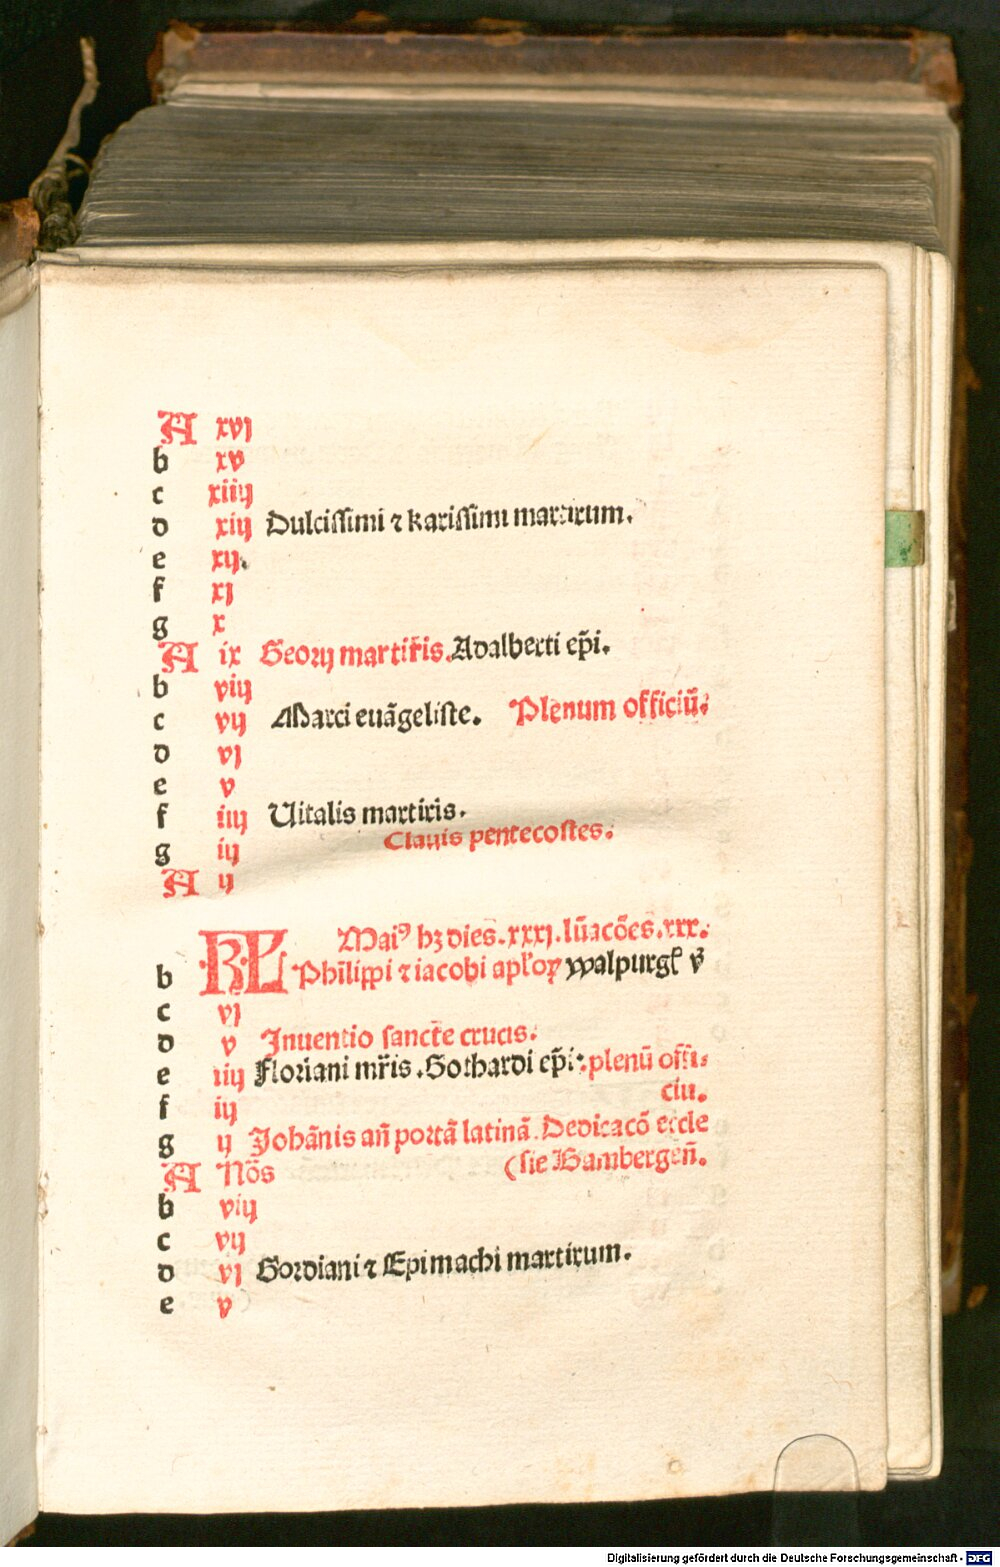 A xvj
b xv
c xiiij
d xiij Dulcissimi ⁊ karissimi martirum.
e xij.
f xj
g x
A ix Georij martir̃is. Adalberti ep̃i.
b viij
c vij Marci euãgeliste. Plenum officiũ.
d vj
e v
f iiij Uitalis martiris.
Clauis pentecostes.
g iij
A ij
Maiꝰ hꝫ dies. xxxj. lũacões. xxx.
b KL Phĩlippi ⁊ iacobi apl'oꝝ walpurgl' v̓
c vj
d v Inuentio sanct̃e crucis.
e iiij Floriani mr̃is. Gothardi ep̃i: plenũ offi-
ciu.
f iij
g ij Johãnis añ portã latinã. Dedicacõ eccle
A Nõs (sie Bambergeñ.
b viij
c vij
d vj Gordiani ⁊ Epimachi martirum.
e v
Digitalisierung gefördert durch die Deutsche Forschungsgemeinschaft - DFG